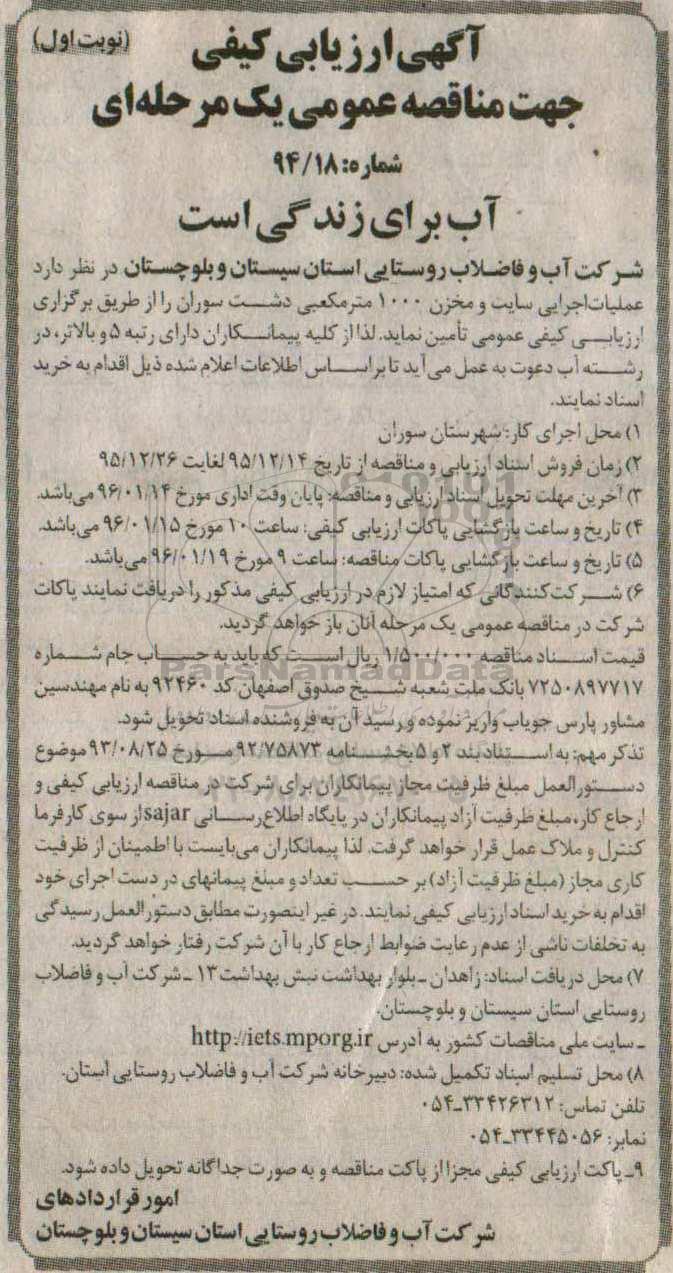 (نوبت اول)
آگهی ارزیابی کیفی
جهت مناقصه عمومی یک مرحله‌ای
شماره: ۹۴/۱۸
آب برای زندگی است
شرکت آب و فاضلاب روستایی استان سیستان و بلوچستان در نظر دارد
عملیات‌اجرایی سایت و مخزن ۱۰۰۰ مترمکعبی دشت سوران را از طریق برگزاری
ارزیابی کیفی عمومی تأمین نماید. لذا از کلیه پیمانکاران دارای رتبه ۵ و بالاتر، در
رشته آب دعوت به عمل می‌آید تا براساس اطلاعات اعلام شده ذیل اقدام به خرید
اسناد نمایند.
۱) محل اجرای کار: شهرستان سوران
۲) زمان فروش اسناد ارزیابی و مناقصه از تاریخ ۹۵/۱۲/۱۴ لغایت ۹۵/۱۲/۲۶
۳) آخرین مهلت تحویل اسناد ارزیابی و مناقصه: پایان وقت اداری مورخ ۹۶/۰۱/۱۴ می‌باشد.
۴) تاریخ و ساعت بازگشایی پاکات ارزیابی کیفی: ساعت ۱۰ مورخ ۹۶/۰۱/۱۵ می‌باشد.
۵) تاریخ و ساعت بازگشایی پاکات مناقصه: ساعت ۹ مورخ ۹۶/۰۱/۱۹ می‌باشد.
۶) شرکت‌کنندگانی که امتیاز لازم در ارزیابی کیفی مذکور را دریافت نمایند پاکات
شرکت در مناقصه عمومی یک مرحله آنان باز خواهد گردید.
قیمت اسناد مناقصه ۱/۵۰۰/۰۰۰ ریال است که باید به حساب جام شماره
۷۲۵۰۸۹۷۷۱۷ بانک ملت شعبه شیخ صدوق اصفهان کد ۹۲۴۶۰ به نام مهندسین
مشاور پارس جویاب واریز نموده و رسید آن به فروشنده اسناد تحویل شود.
تذکر مهم: به استناد بند ۲ و ۵ بخشنامه ۹۲/۷۵۸۷۳ مورخ ۹۳/۰۸/۲۵ موضوع
دستورالعمل مبلغ ظرفیت مجاز پیمانکاران برای شرکت در مناقصه ارزیابی کیفی و
ارجاع کار، مبلغ ظرفیت آزاد پیمانکاران در پایگاه اطلاع‌رسانی sajar از سوی کارفرما
کنترل و ملاک عمل قرار خواهد گرفت. لذا پیمانکاران می‌بایست با اطمینان از ظرفیت
کاری مجاز (مبلغ ظرفیت آزاد) بر حسب تعداد و مبلغ پیمانهای در دست اجرای خود
اقدام به خرید اسناد ارزیابی کیفی نمایند. در غیر اینصورت مطابق دستورالعمل رسیدگی
به تخلفات ناشی از عدم رعایت ضوابط ارجاع کار با آن شرکت رفتار خواهد گردید.
۷) محل دریافت اسناد: زاهدان ـ بلوار بهداشت نبش بهداشت ۱۳ ـ شرکت آب و فاضلاب
روستایی استان سیستان و بلوچستان.
ـ سایت ملی مناقصات کشور به آدرس http://iets.mporg.ir
۸) محل تسلیم اسناد تکمیل شده: دبیرخانه شرکت آب و فاضلاب روستایی استان.
تلفن تماس: ۳۳۴۲۶۳۱۲-۰۵۴
نمابر: ۳۳۴۴۵۰۵۶-۰۵۴
۹ـ پاکت ارزیابی کیفی مجزا از پاکت مناقصه و به صورت جداگانه تحویل داده شود.
امور قراردادهای
شرکت آب و فاضلاب روستایی استان سیستان و بلوچستان
ParsNamadData